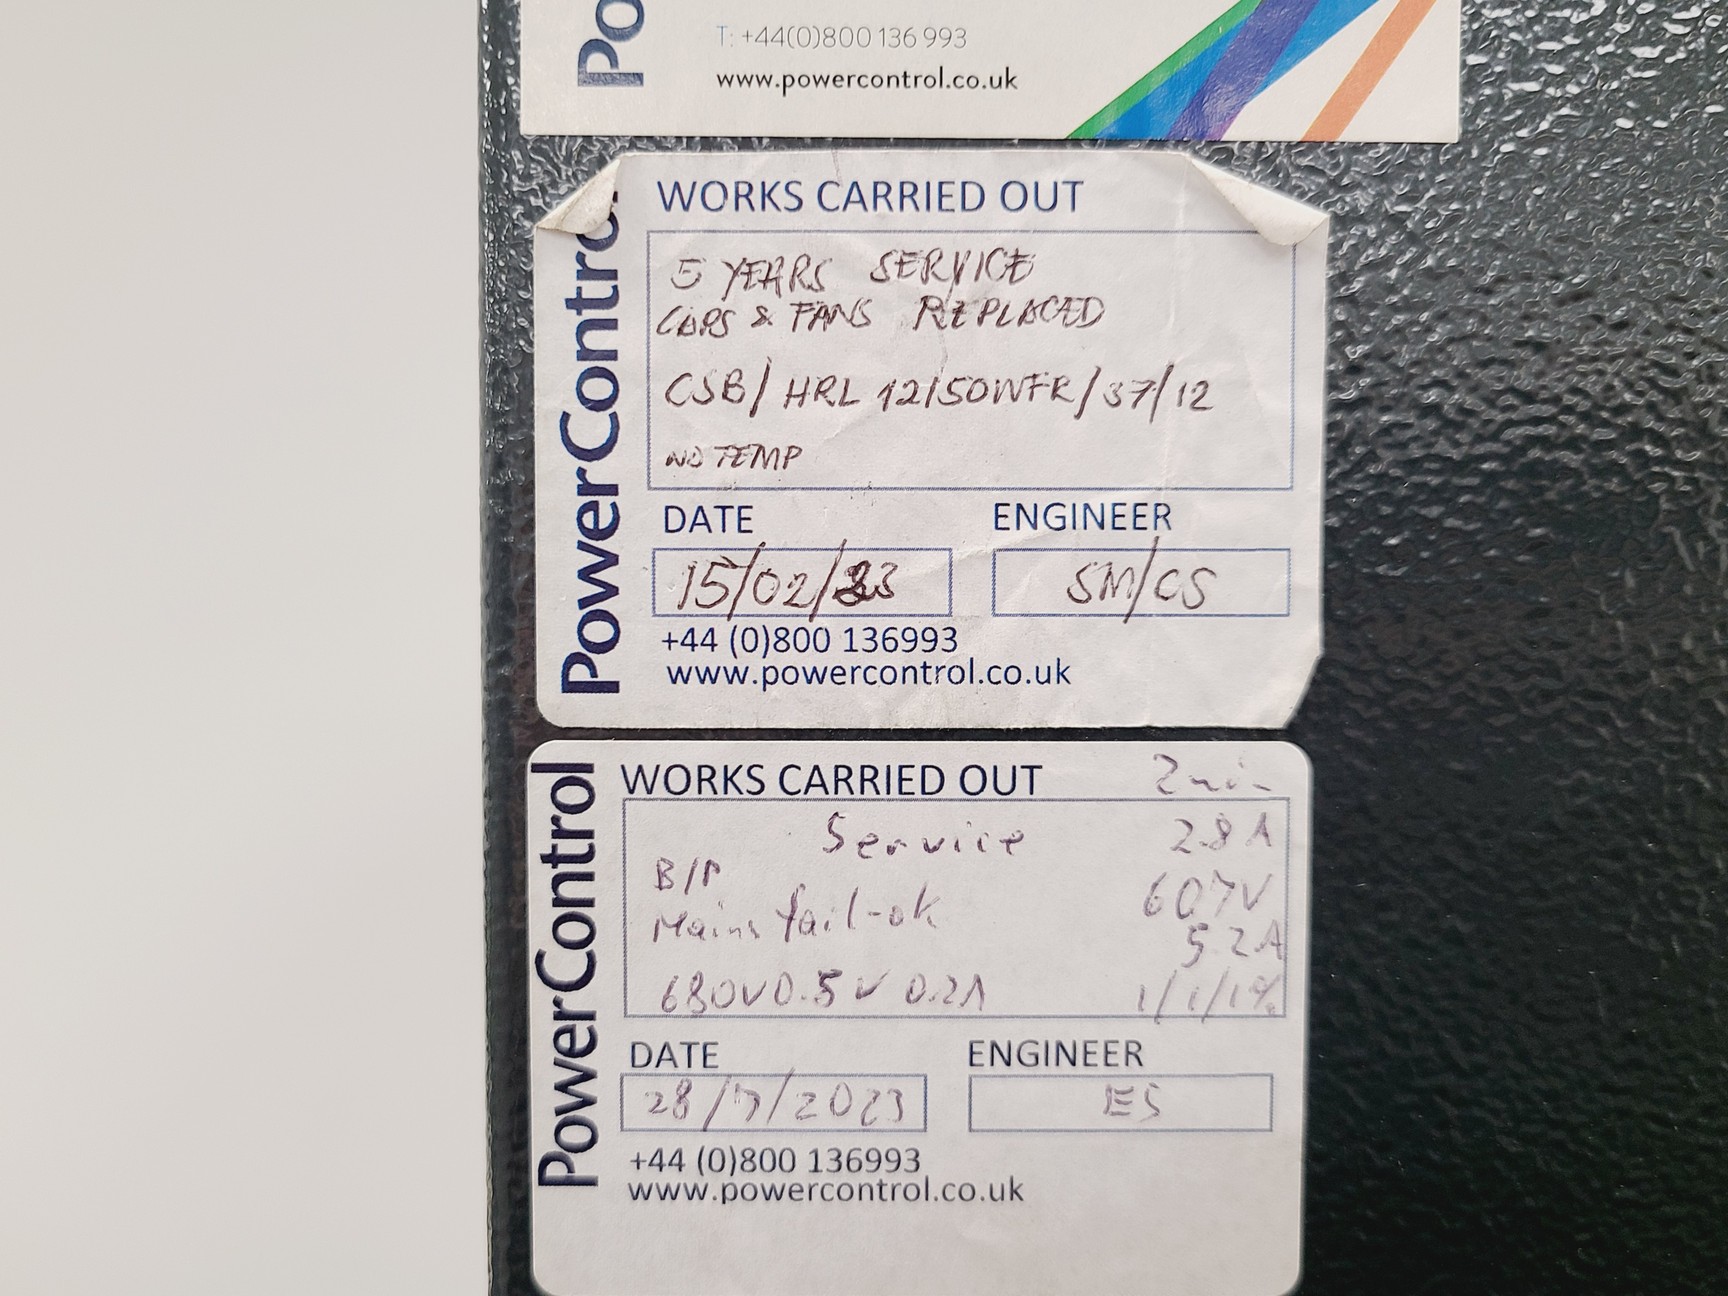 Po
T: +44(0)800 136 993
www.powercontrol.co.uk
PowerControl
WORKS CARRIED OUT
5 YEARS SERVICE
CAPS & FANS REPLACED
CSB/ HRL 12150WFR/37/12
NO TEMP
DATE
ENGINEER
15/02/23
SM/CS
+44 (0)800 136993
www.powercontrol.co.uk
PowerControl
WORKS CARRIED OUT 2min
Service 2.8A
B/P 607V
Mains fail-ok 5.2A
680V 0.5V 0.2A 1/1/1%
DATE
ENGINEER
28/7/2023
ES
+44 (0)800 136993
www.powercontrol.co.uk